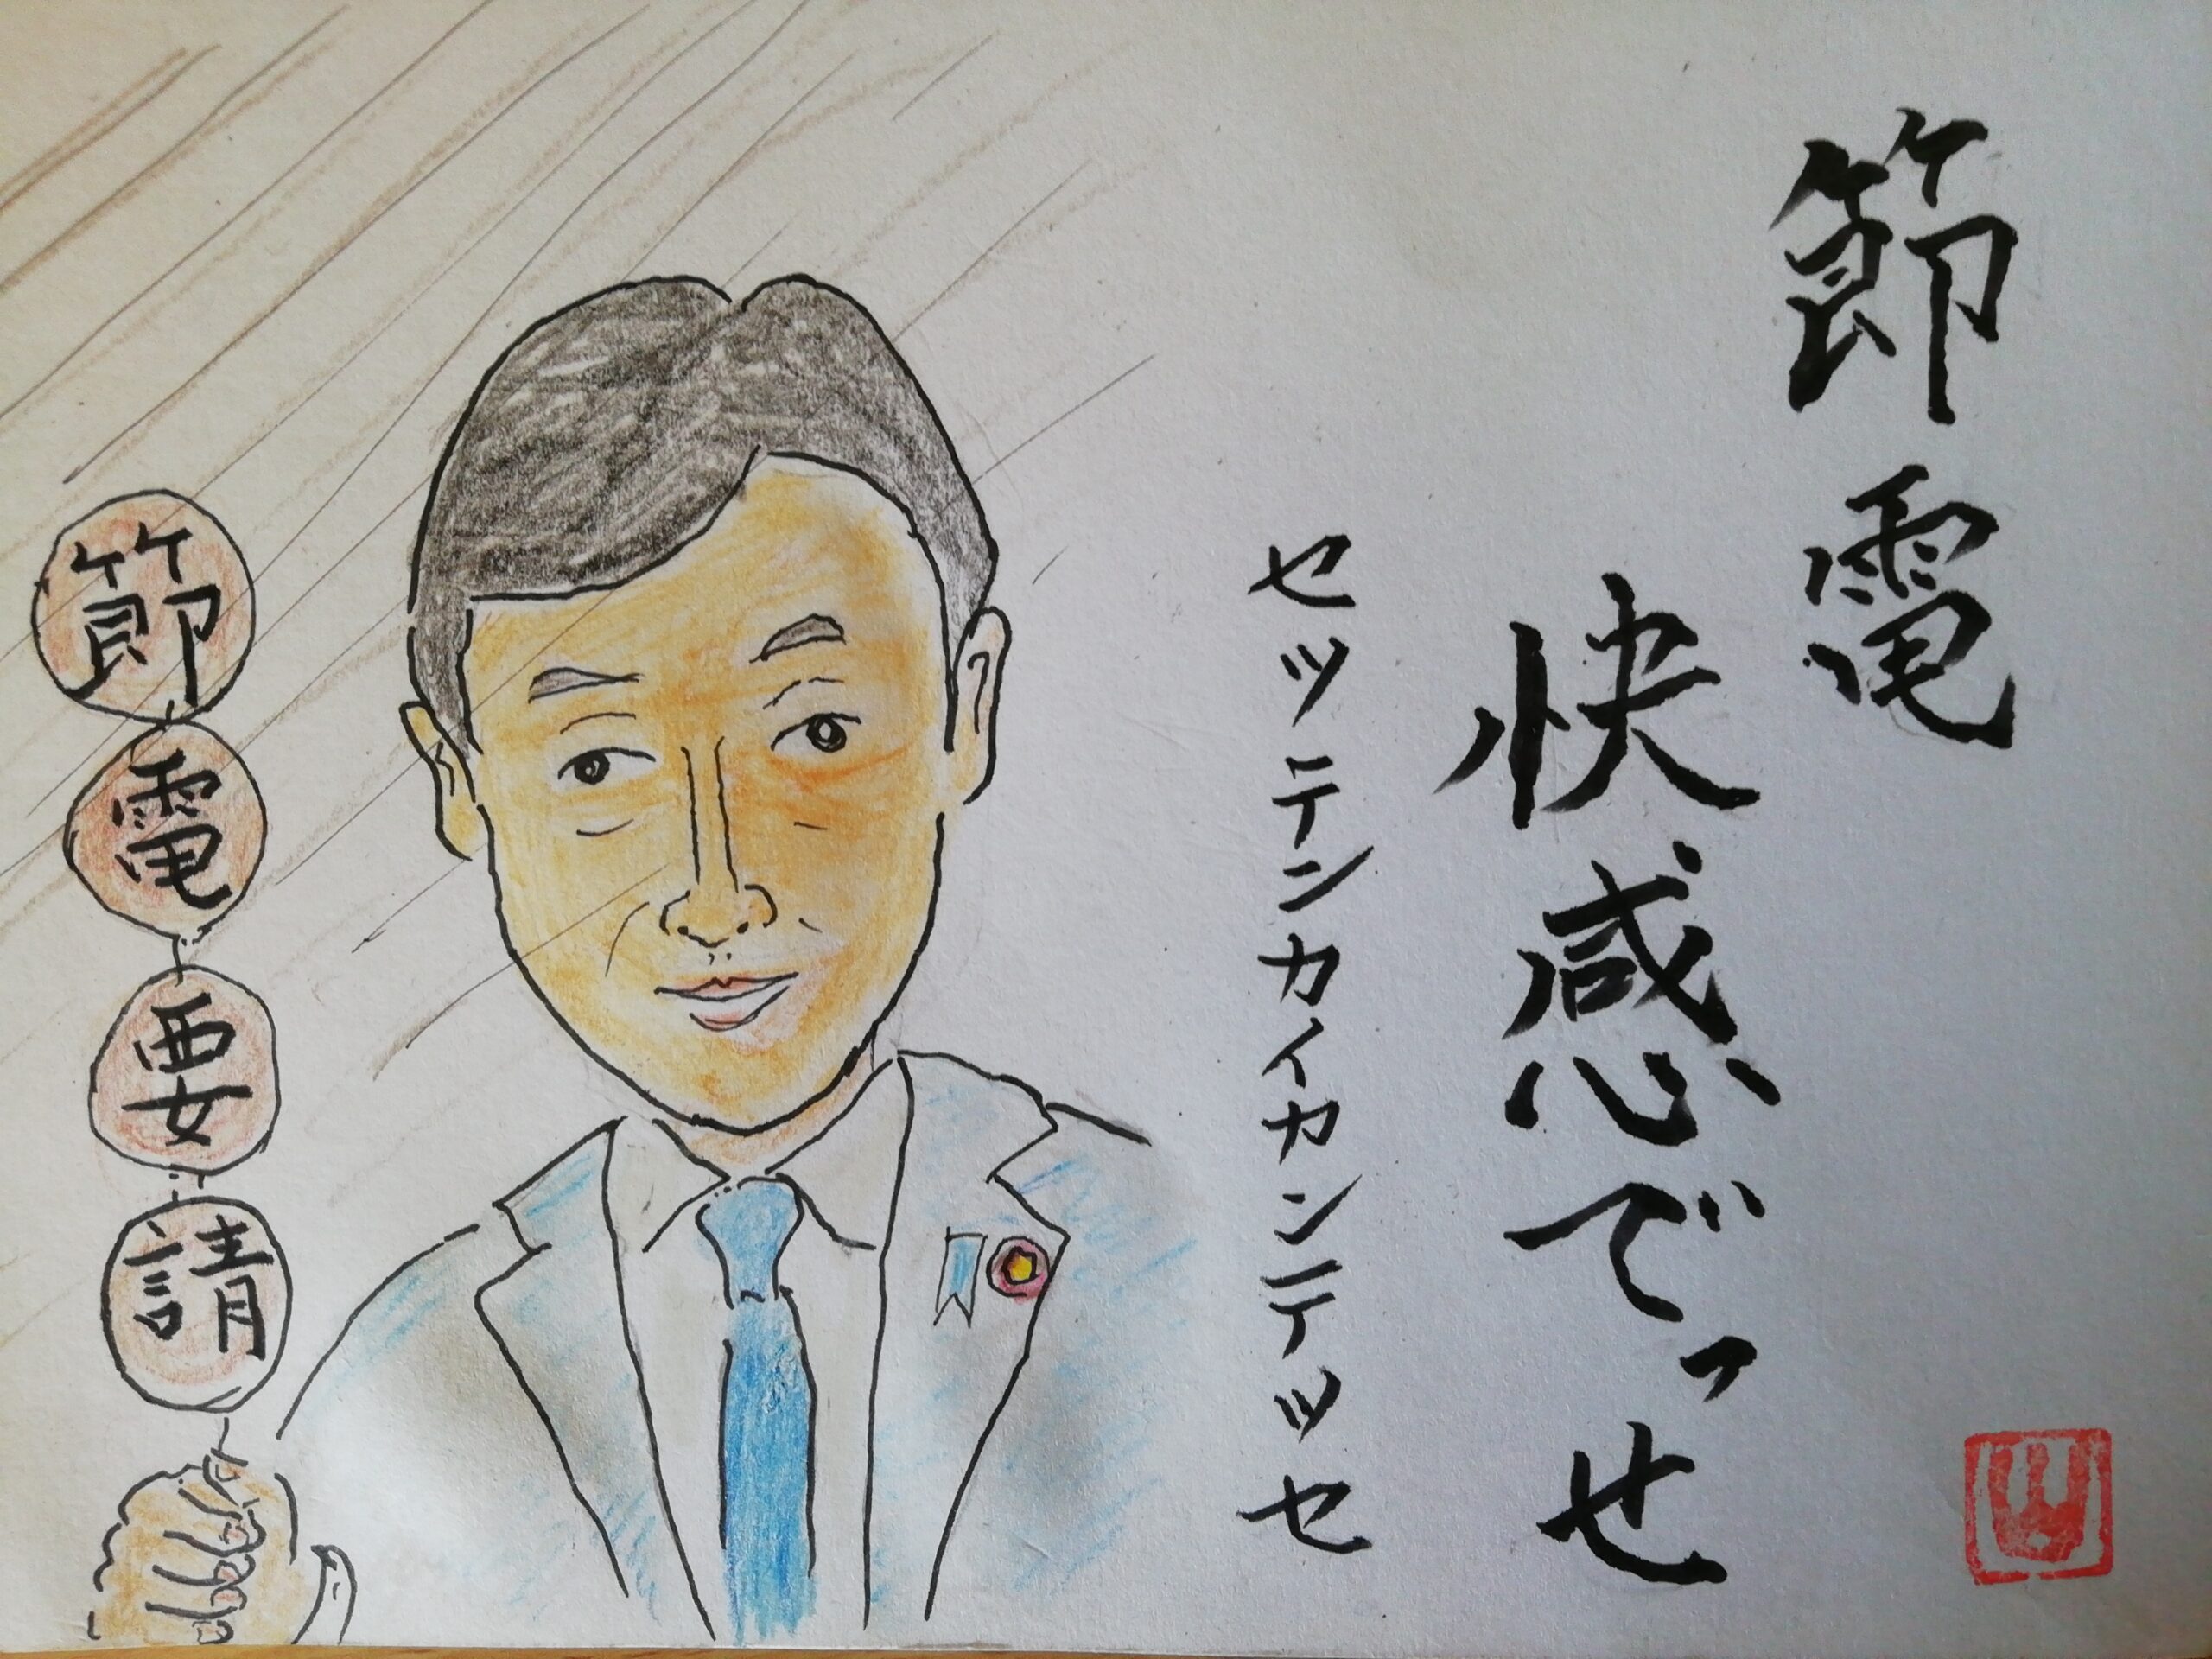 節電
快感でっせ
セッテンカイカンテッセ
節電要請